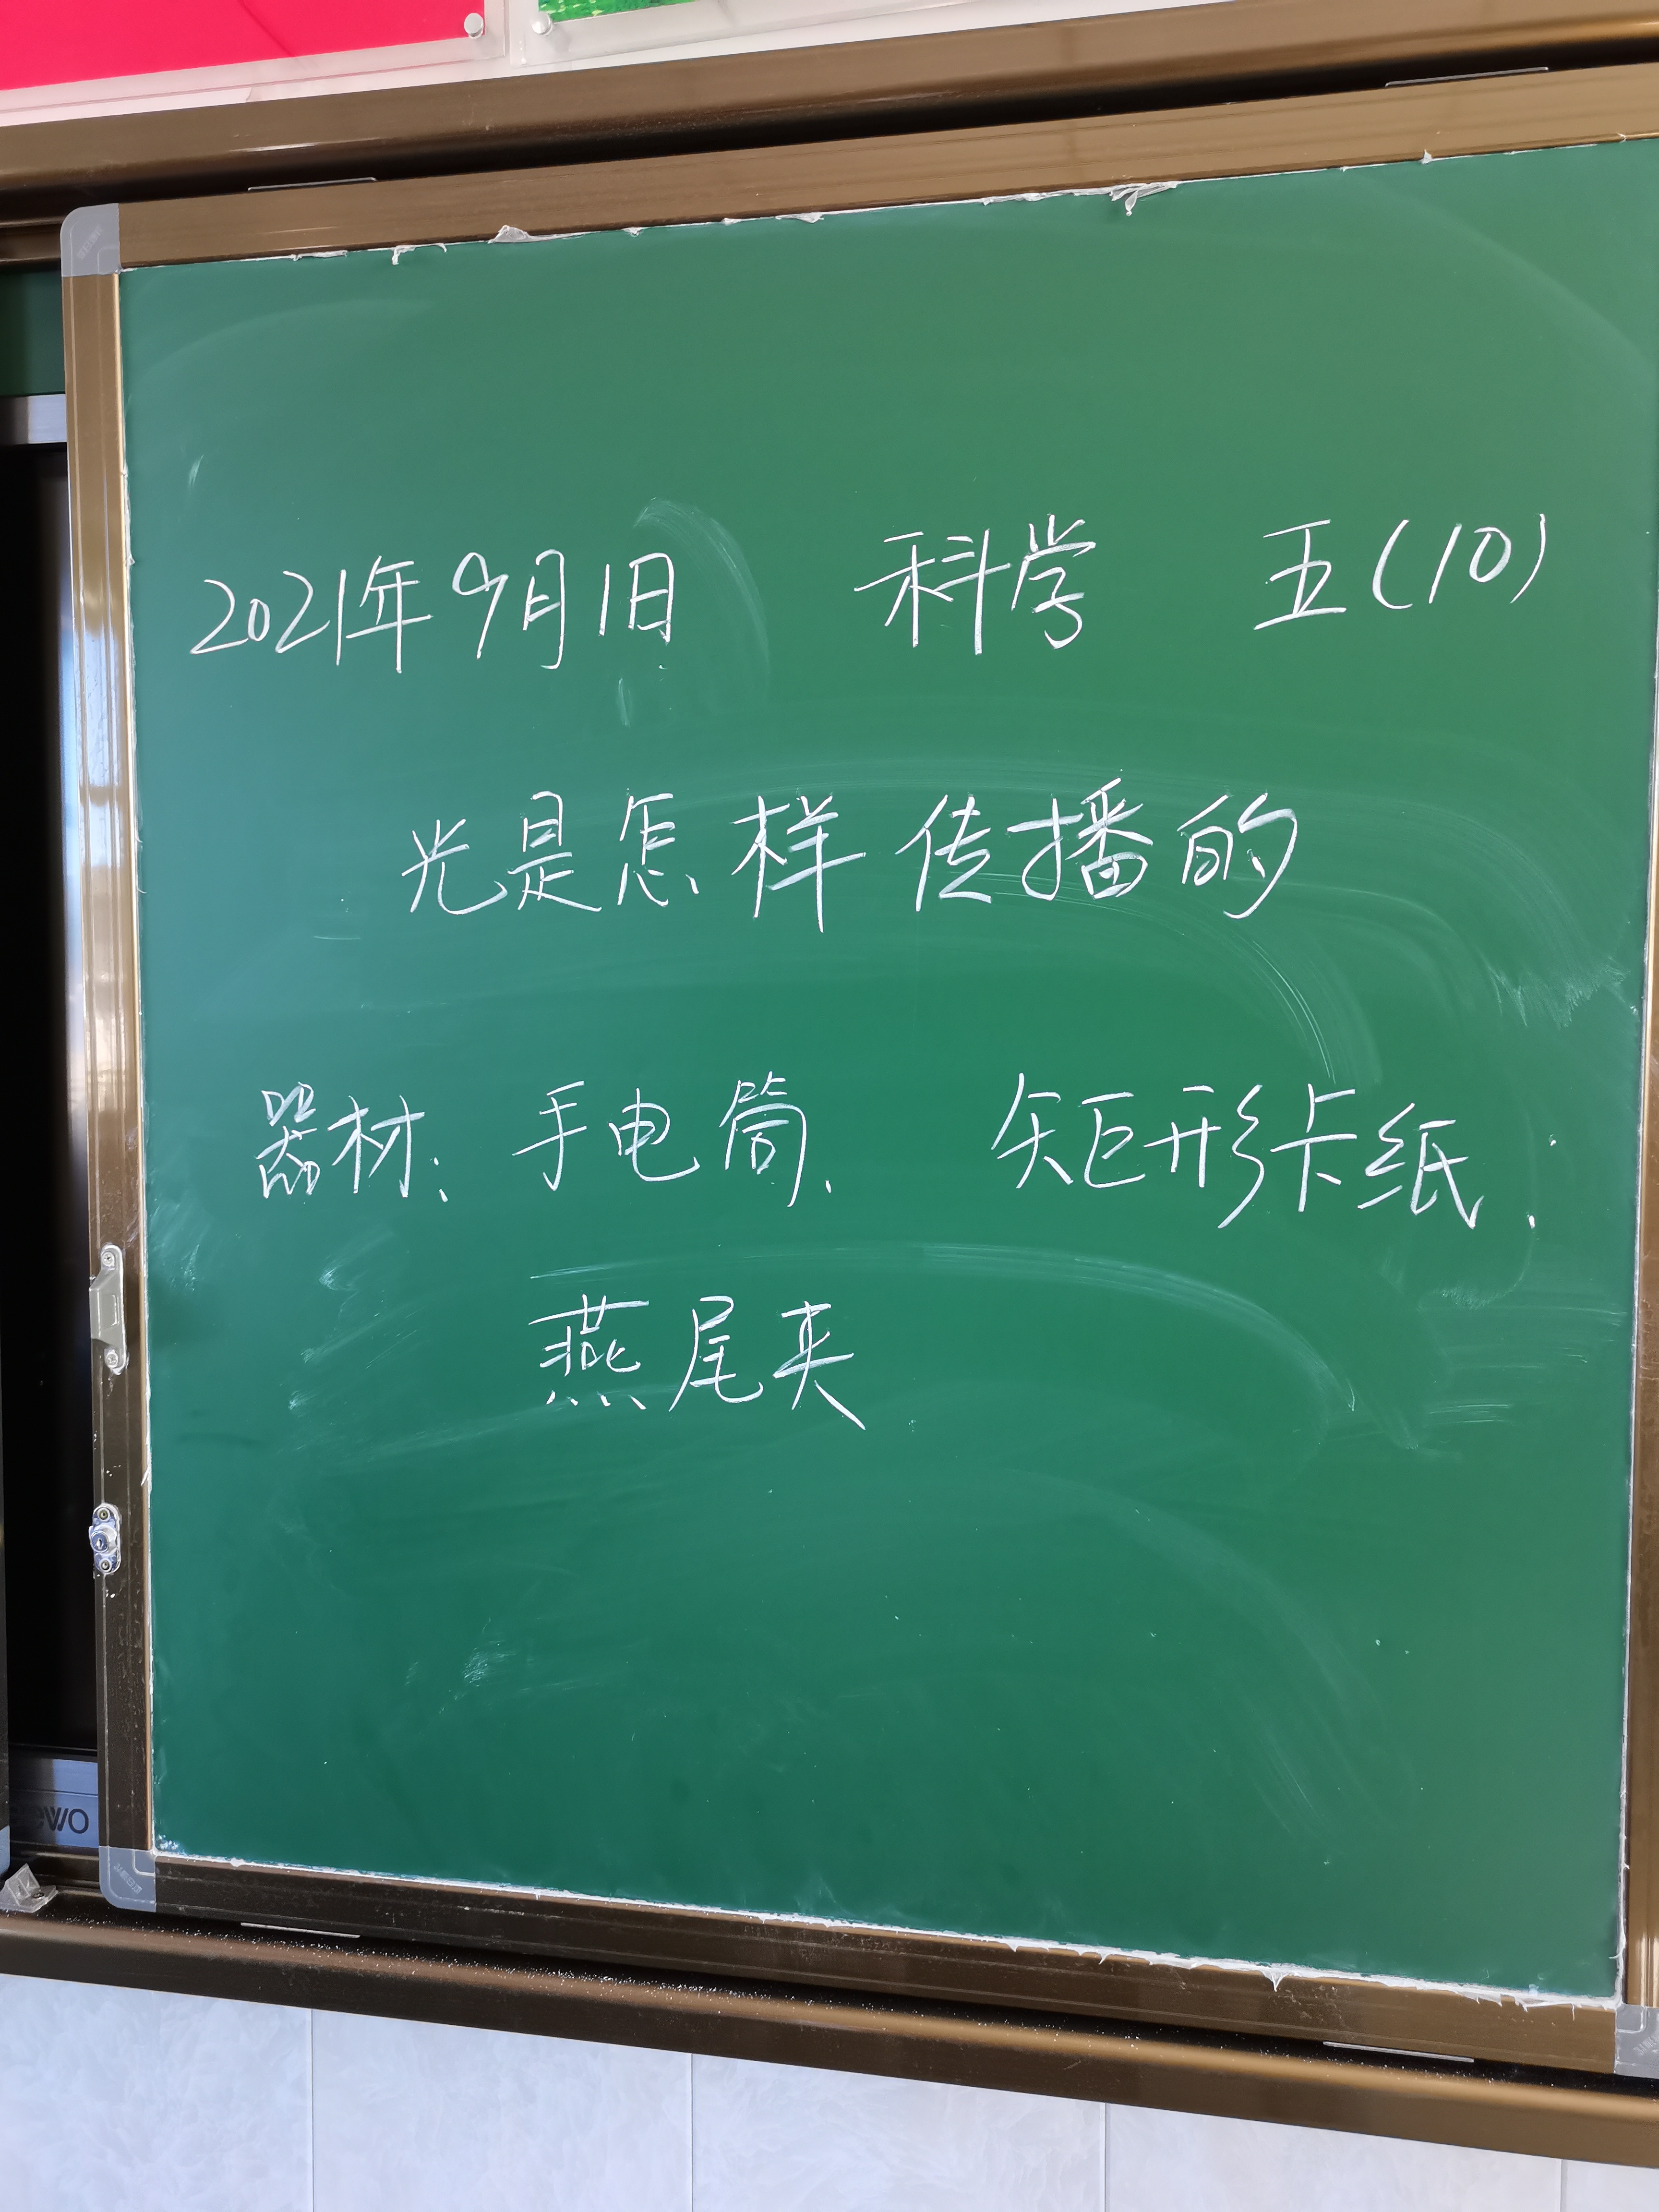 2021年9月1日 科学 五(10)
光是怎样传播的
器材: 手电筒. 矩形卡纸.
燕尾夹
ewo